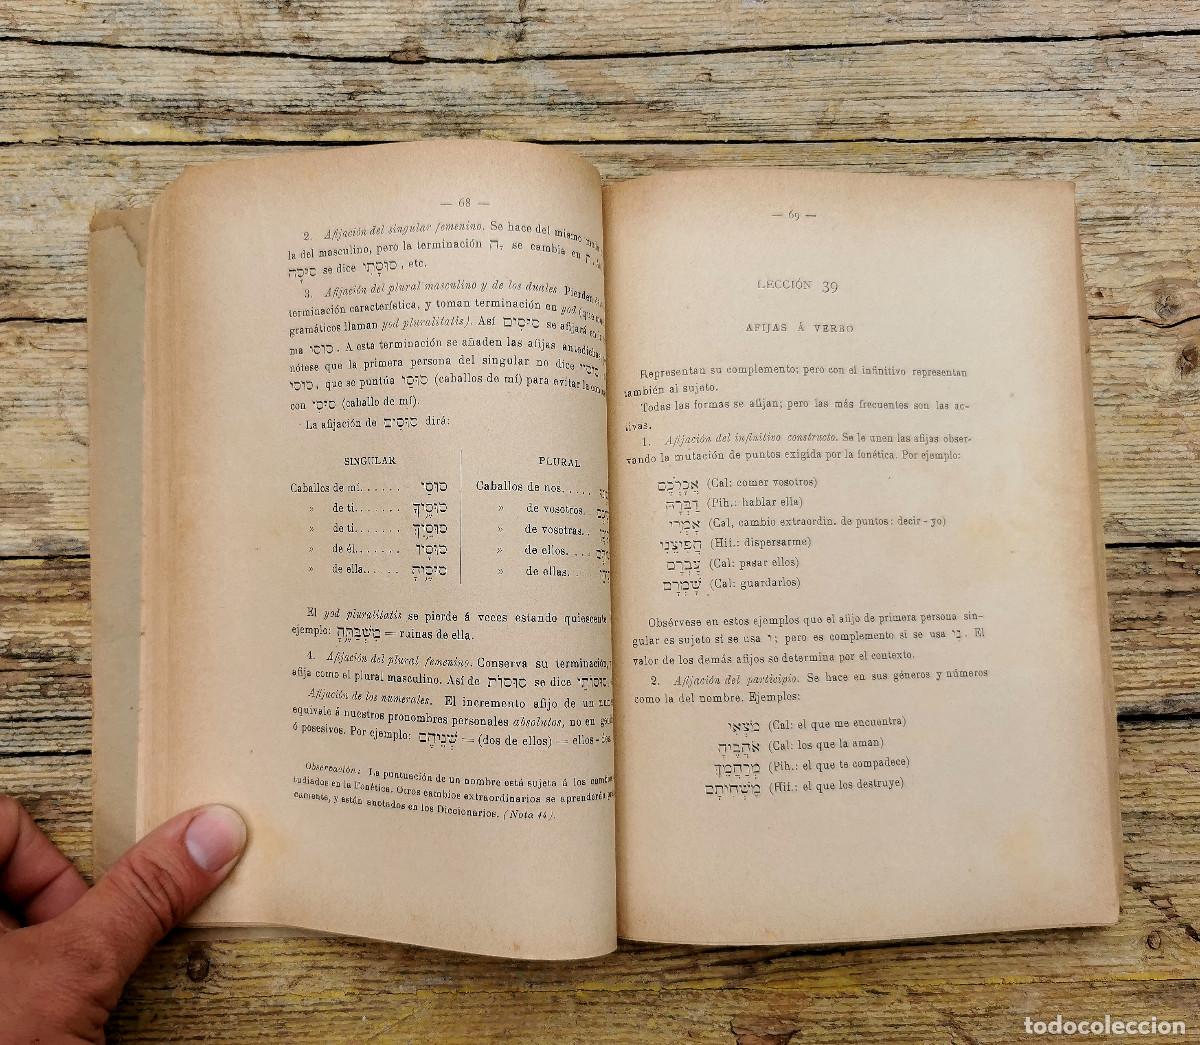 — 68 —
2. Afijación del singular femenino. Se hace del mismo
la del masculino, pero la terminación se cambia en
se dice , etc.
3. Afijación del plural masculino y de los duales Pierden
terminación característica, y toman terminación en yod
gramáticos llaman yod pluralitatis). Así סוּסִים se afijará
ma סוּסַי. A esta terminación se añaden las afijas antedichas
nótese que la primera persona del singular no dice
, que se puntúa סוּסַי (caballos de mí) para evitar la
con סוּסִי (caballo de mí).
La afijación de סוּסִים dirá:
SINGULAR
Caballos de mí...... סוּסַי
» de ti....... סוּסֶיךָ
» de ti.......
» de él......
» de ella.....
PLURAL
Caballos de nos.....
» de vosotros.
» de vosotras..
» de ellos...
» de ellas.
El yod pluralitatis se pierde á veces estando quiescente
ejemplo: = ruinas de ella.
4. Afijación del plural femenino. Conserva su terminación,
afija como el plural masculino. Así de סוּסוֹת se dice
Afijación de los numerales. El incremento afijo de un
equivale á nuestros pronombres personales absolutos, no en
ó posesivos. Por ejemplo: שְׁנֵיהֶם = (dos de ellos) = ellos-
Observación: La puntuación de un nombre está sujeta á los
tudiados en la Fonética. Otros cambios extraordinarios se aprenderán
camente, y están anotados en los Diccionarios. (Nota 44).
— 69 —
LECCIÓN 39
AFIJAS Á VERBO
Representan su complemento; pero con el infinitivo representan
también al sujeto.
Todas las formas se afijan; pero las más frecuentes son las ac-
tivas.
1. Afijación del infinitivo constructo. Se le unen las afijas obser-
vando la mutación de puntos exigida por la fonética. Por ejemplo:
(Cal: comer vosotros)
(Pih.: hablar ella)
אָמְרִי (Cal, cambio extraordin. de puntos: decir-yo)
(Hif.: dispersarme)
(Cal: pasar ellos)
(Cal: guardarlos)
Obsérvese en estos ejemplos que el afijo de primera persona sin-
gular es sujeto si se usa ; pero es complemento si se usa . El
valor de los demás afijos se determina por el contexto.
2. Afijación del participio. Se hace en sus géneros y números
como la del nombre. Ejemplos:
מֹצְאִי (Cal: el que me encuentra)
אֹהֲבֶיהָ (Cal: los que la aman)
(Pih.: el que te compadece)
(Hif.: el que los destruye)
todocoleccion